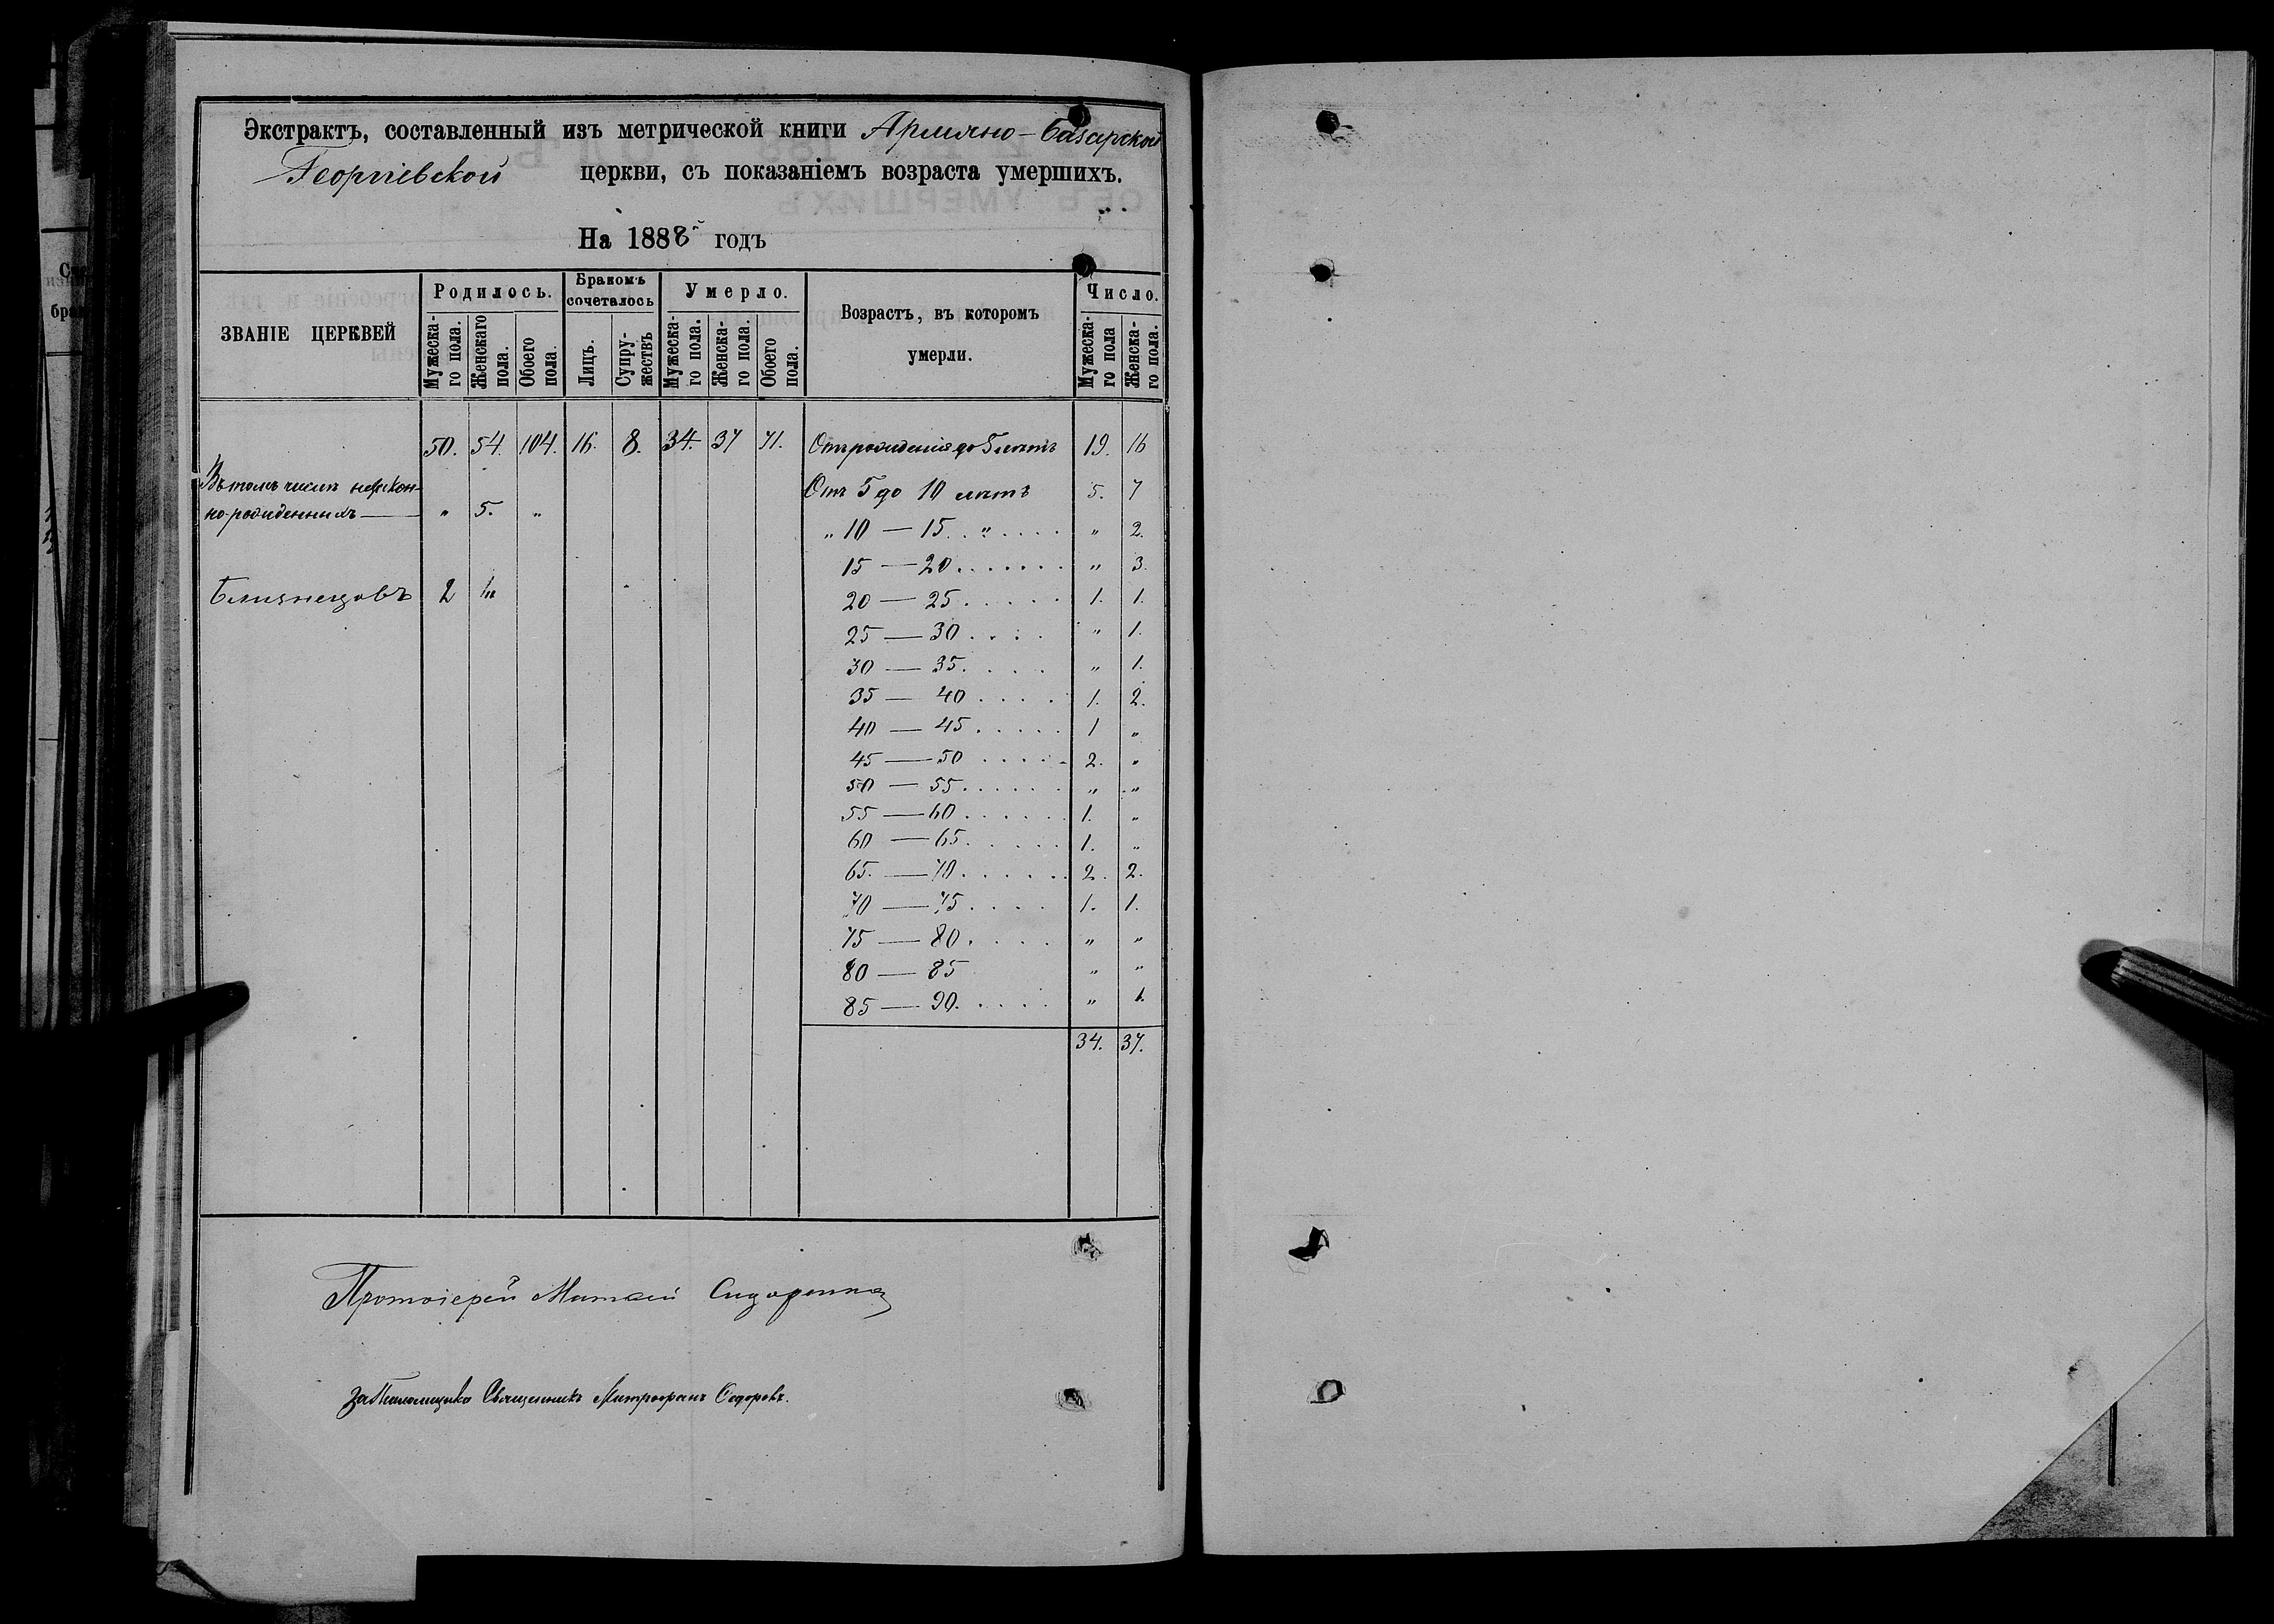 Экстрактъ, составленный изъ метрической книги Армяно-Базарской
Георгіевской церкви, съ показаніемъ возраста умершихъ.
На 1888й годъ
ЗВАНІЕ ЦЕРКВЕЙ
Родилось.
Мужеска-
го пола.
Женскаго
пола.
Обоего
пола.
Бракомъ
сочеталось
Лицъ.
Супру-
жествъ
Умерло.
Мужеска-
го пола.
Женска-
го пола.
Обоего
пола.
Возрастъ, въ которомъ
умерли.
Число.
Мужеска-
го пола
Женска-
го пола.
50. 54. 104. 16. 8. 34. 37 71. Отъ рожденія до 5 лѣтъ 19. 16
Въ томъ числѣ незакон-
но-рожденныхъ — „ 5. „
Отъ 5 до 10 лѣтъ 5. 7
„ 10 — 15 . . „ . . . . „ 2.
15 — 20 . . . . . . . „ 3.
Близнецовъ 2 1„
20 — 25 . . . . . 1. 1.
25 — 30 . . . . „ 1.
30 — 35 . . . . „ 1.
35 — 40 . . . . 1. 2.
40 — 45 . . . . . 1 „
45 — 50 . . . . . 2. „
50 — 55 . . . . . . „ „
55 — 60 . . . . . . 1. „
60 — 65 . . . . . . 1. „
65. — 70 . . . . . . 2. 2.
70 — 75 . . . . 1. 1.
75 — 80 . . . . „ „
80 — 85 „ „
85 — 90 . . . . . „ 1.
34. 37.
Протоіерей Матѳей Сидоренко
за Псаломщика Священникъ Митрофанъ Сидоровъ.